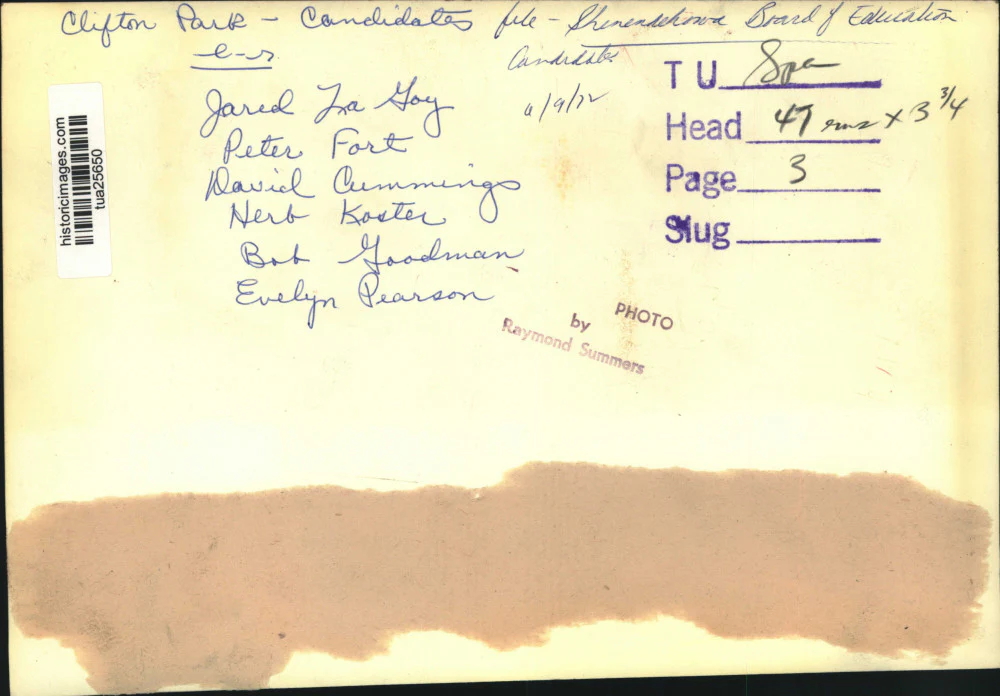 Clifton Park - Candidates file - Shenendehowa Board of Education
Candidates
l-r
6/9/72
Jared La Goy
Peter Fort
David Cummings
Herb Koster
Bob Goodman
Evelyn Pearson
T U Spa
Head 47 ems x 3 3/4
Page 3
Slug
PHOTO
by
Raymond Summers
historicimages.com
tua25650